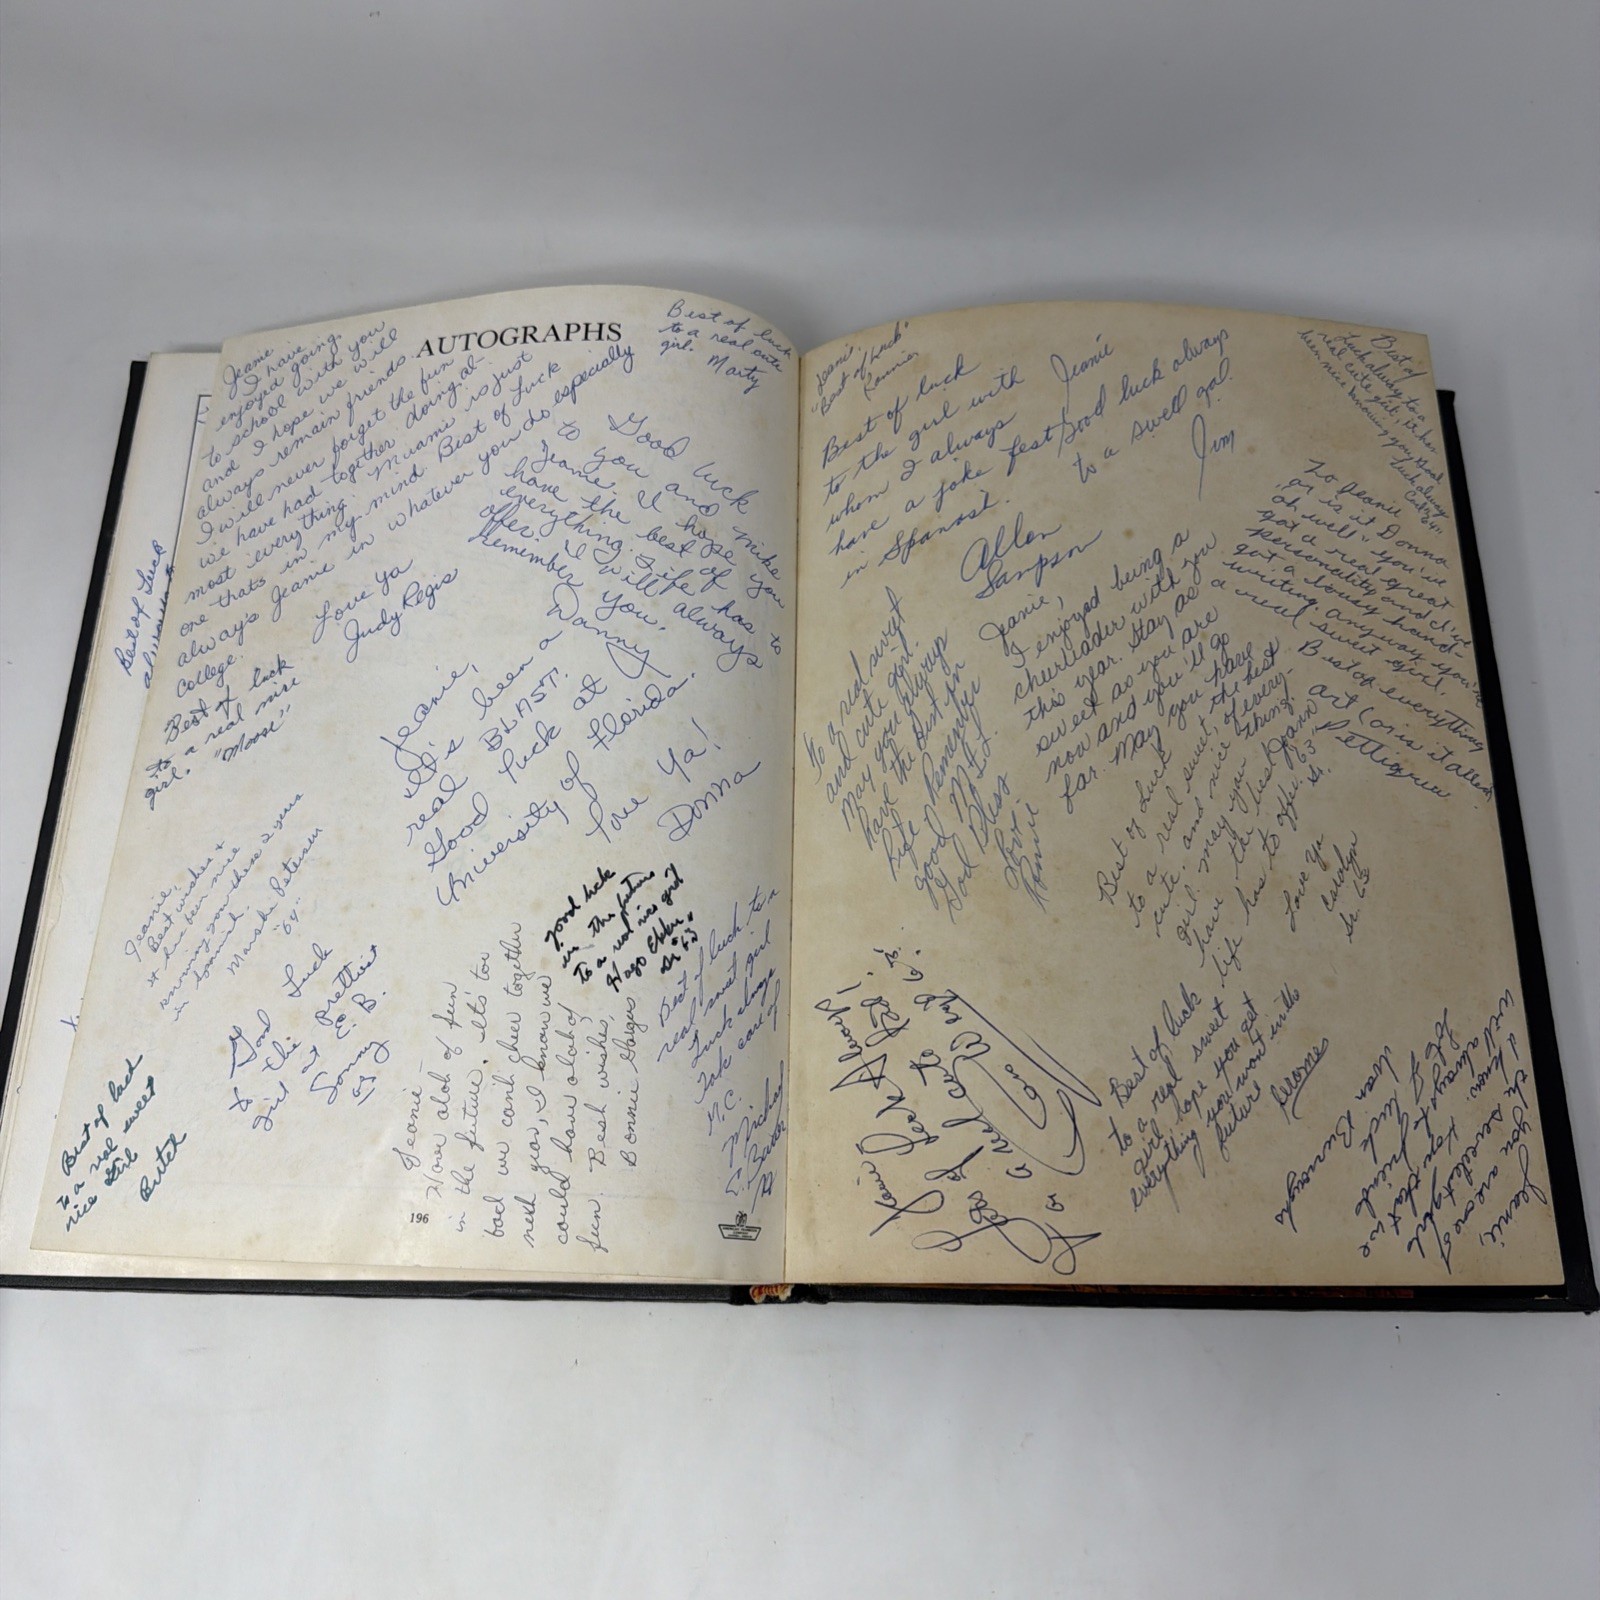 AUTOGRAPHS
Jeanie
I have
enjoyed going
to school with you
and I hope we will
always remain friends.
I will never forget the fun
we have had together doing al-
most everything. Miami is just
one thats in my mind. Best of Luck
always Jeanie in whatever you do especially
College.
Love Ya
Judy Regis
Best of luck
to a real cute
girl.
Marty
Good luck
to you and Mike
Jeanie. I hope you
have the best of
everything life has to
offer. I will always
remember you.
Danny
Best of Luck
Best of luck
to a real nice
girl.
"Moose"
Jeanie,
It's been a
real BLAST.
Good luck at
University of Florida.
Love Ya!
Donna
Jeanie,
Best wishes &
it has been nice
knowing you these 2 years
in
Marsha Petersen
"64"
Good Luck
to the prettiest
girl at E. B.
Sonny
63
good luck
in the future
to a real nice girl
Sr "63"
Best of luck to a
real sweet girl
Luck always
Take care of
M.C.
Michael
E. Baxter
Jeanie -
Have alot of fun
in the future. It's too
bad we can't cheer together
next year, I know we
could have alot of
fun. Best wishes,
Bonnie
Best of luck
to a real sweet
nice girl
Butch
196
Jeanie,
"Best of Luck"
Ronnie
Best of luck
to the girl with
whom I always
have a joke fest
in Spanish.
Allen
Sampson
Jeanie
Good luck always
to a swell gal.
Jim
Best of
Luck always to a
real cute girl, it has
been nice knowing you. Good
luck always
"64"
To Jeanie
or is it Donna
oh well" you've
got a real great
personality and I've
got a lousy hand-
writing. anyway you're
a real sweet girl.
Best of everything
Art (or is it allen)
Pettigrew
To a real sweet
and cute girl.
May you always
have the best in
life Remember
Good
God Bless
Love
Ronnie
Jeanie,
I enjoyed being a
cheerleader with you
this year. Stay as
sweet as you are
now and you'll go
far. May you have
the best
of every-
thing
Joann
"63"
Sr.
Best of Luck
to a real sweet,
cute, and nice
girl. may you
have the best
life has to offer.
Love Ya
Carolyn
Sr. 63
Best of luck
to a real sweet
girl, hope you get
everything you want in the
future
Jerome
Jeanie,
you are one of
the sweetest girls
I know. Hope that we
will always be friends
Lots of luck
Ivan Burroughs